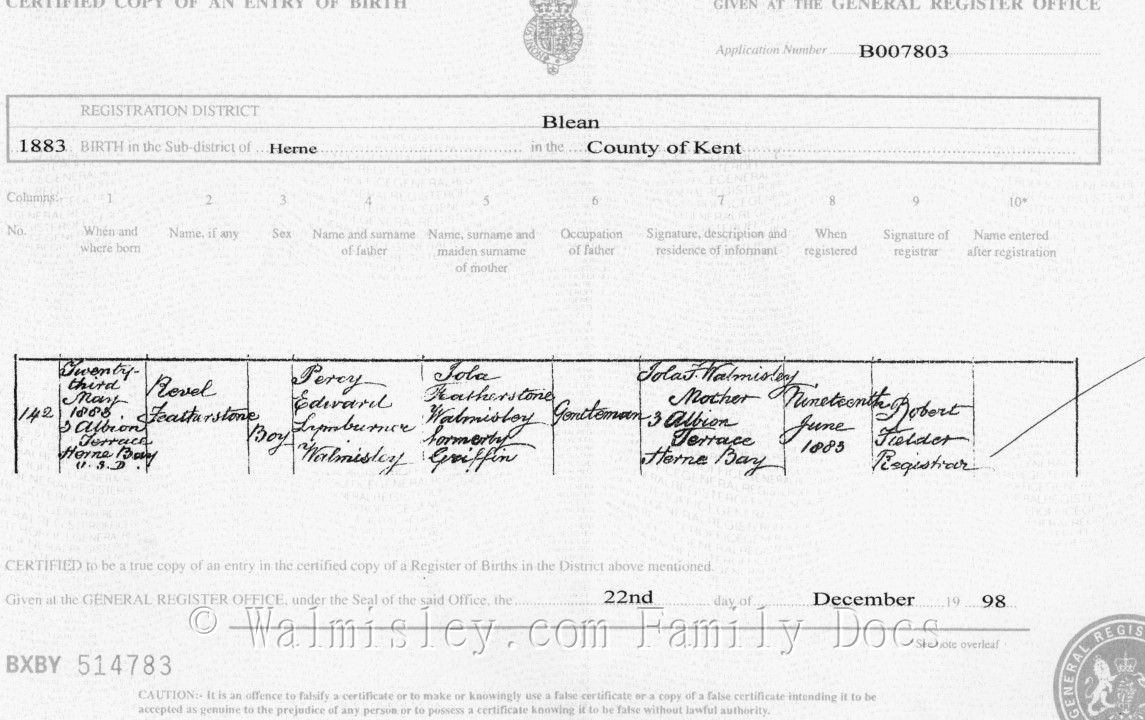 CERTIFIED COPY OF AN ENTRY OF BIRTH
GIVEN AT THE GENERAL REGISTER OFFICE
Application Number B007803
REGISTRATION DISTRICT
Blean
1883 BIRTH in the Sub-district of Herne in the County of Kent
Columns:- 1 2 3 4 5 6 7 8 9 10*
No.
When and
where born
Name, if any
Sex
Name and surname
of father
Name, surname and
maiden surname
of mother
Occupation
of father
Signature, description and
residence of informant
When
registered
Signature of
registrar
Name entered
after registration
142
Twenty-
third
May
1883.
3 Albion
Terrace
Herne Bay
U.S.D.
Revel
Featherstone
Boy
Percy
Edward
Lymburner
Walmisley
Iola
Featherstone
Walmisley
formerly
Griffin
Gentleman
Iola F. Walmisley
Mother
3 Albion
Terrace
Herne Bay
Nineteenth
June
1883
Robert
Fielder
Registrar
CERTIFIED to be a true copy of an entry in the certified copy of a Register of Births in the District above mentioned.
Given at the GENERAL REGISTER OFFICE, under the Seal of the said Office, the 22nd day of December 19 98
© Walmisley.com Family Docs
See note overleaf
BXBY 514783
CAUTION:- It is an offence to falsify a certificate or to make or knowingly use a false certificate or a copy of a false certificate intending it to be
accepted as genuine to the prejudice of any person or to possess a certificate knowing it to be false without lawful authority.
GENERAL REGIS